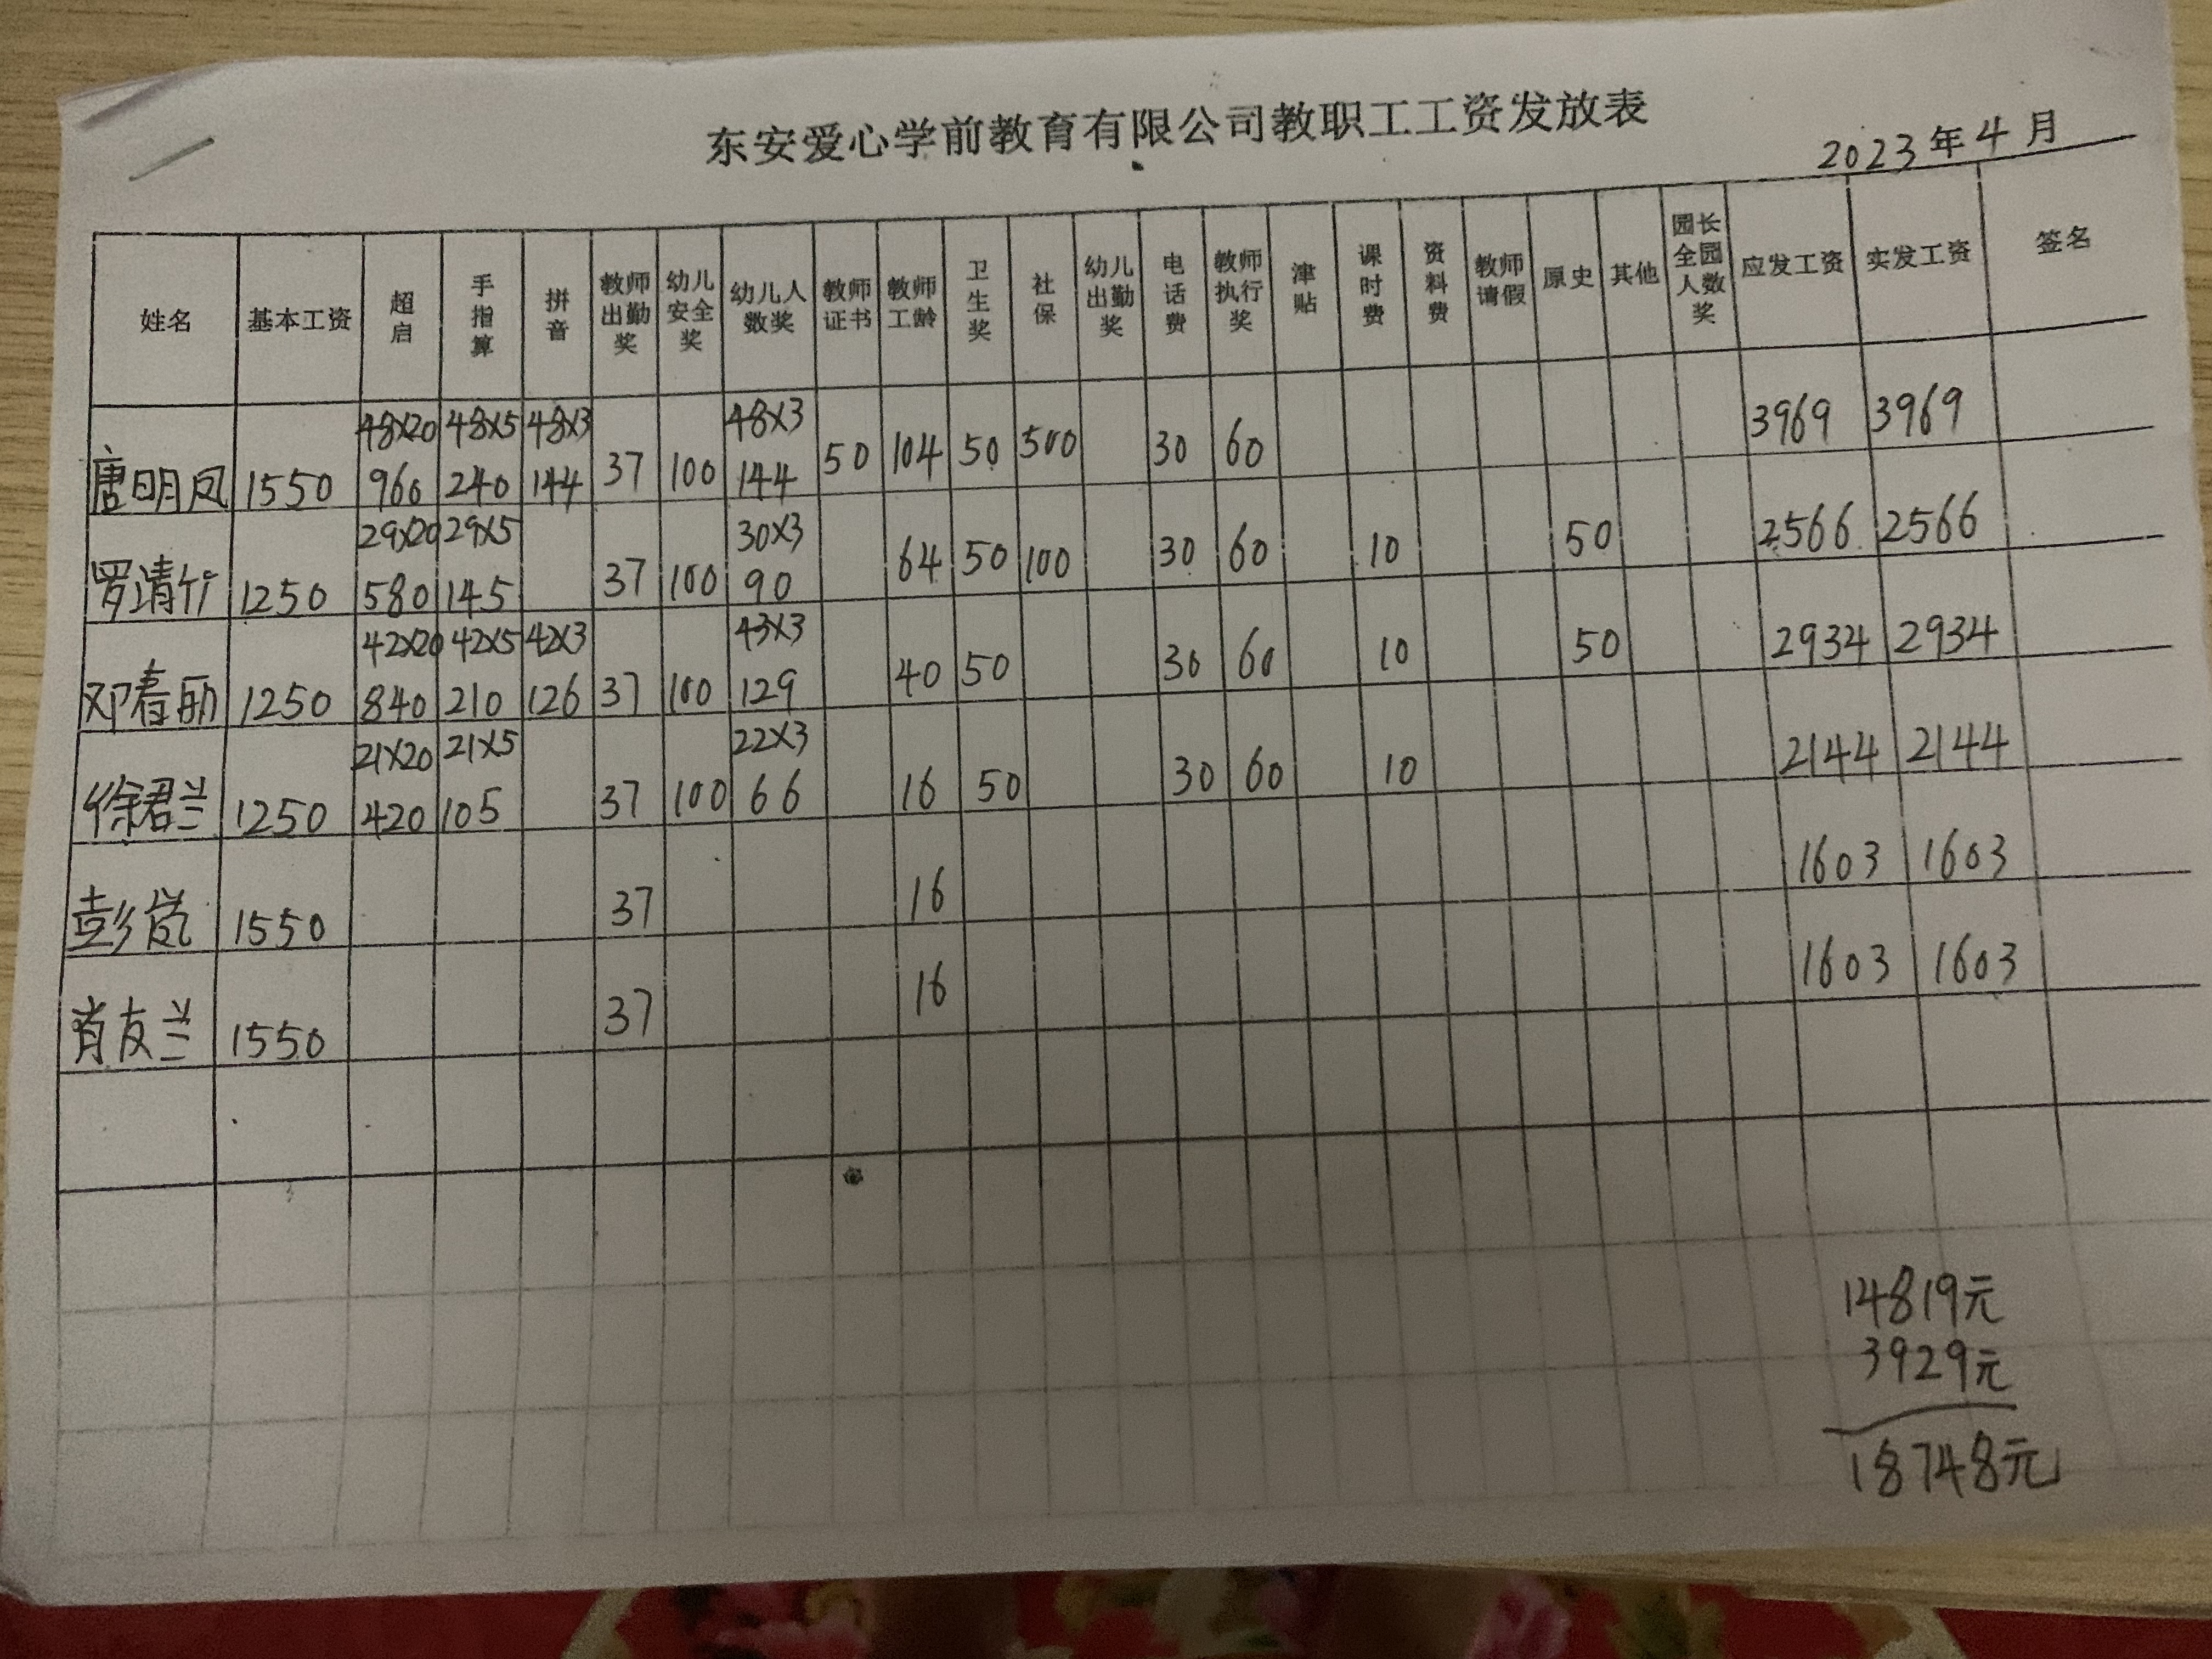 东安爱心学前教育有限公司教职工工资发放表
2023年4月
姓名 基本工资 超启 手指算 拼音 教师出勤奖 幼儿安全奖 幼儿人数奖 教师证书 教师工龄 卫生奖 社保 幼儿出勤奖 电话费 教师执行奖 津贴 课时费 资料费 教师请假 原史 其他 园长全园人数奖 应发工资 实发工资 签名
48×20 48×5 48×3 48×3
唐明凤 1550 960 240 144 37 100 144 50 104 50 500 30 60 3969 3969
29×20 29×5 30×3
罗清竹 1250 580 145 37 100 90 64 50 100 30 60 10 50 2566 2566
42×20 42×5 42×3 43×3
邓春丽 1250 840 210 126 37 100 129 40 50 30 60 10 50 2934 2934
21×20 21×5 22×3
徐君兰 1250 420 105 37 100 66 16 50 30 60 10 2144 2144
彭岚 1550 37 16 1603 1603
肖友兰 1550 37 16 1603 1603
14819元
3929元
18748元